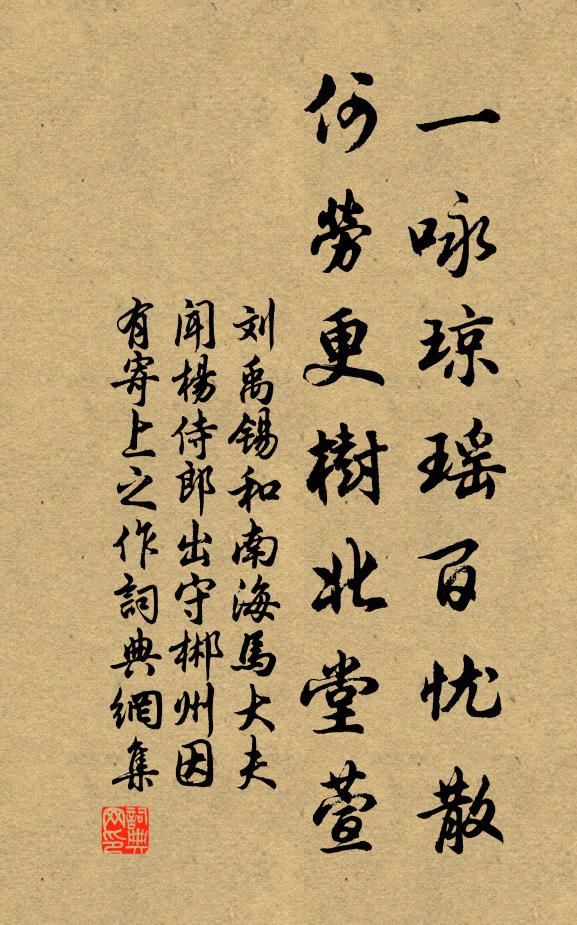 一咏琼瑶百忧散
何劳更樹北堂萱
刘禹锡和南海馬大夫
闻楊侍郎出守郴州因
有寄上之作詞典網集
詞典
网印